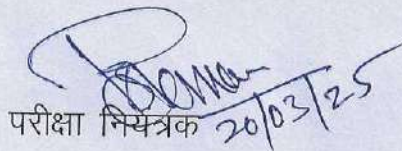 परीक्षा नियंत्रक 20/03/25